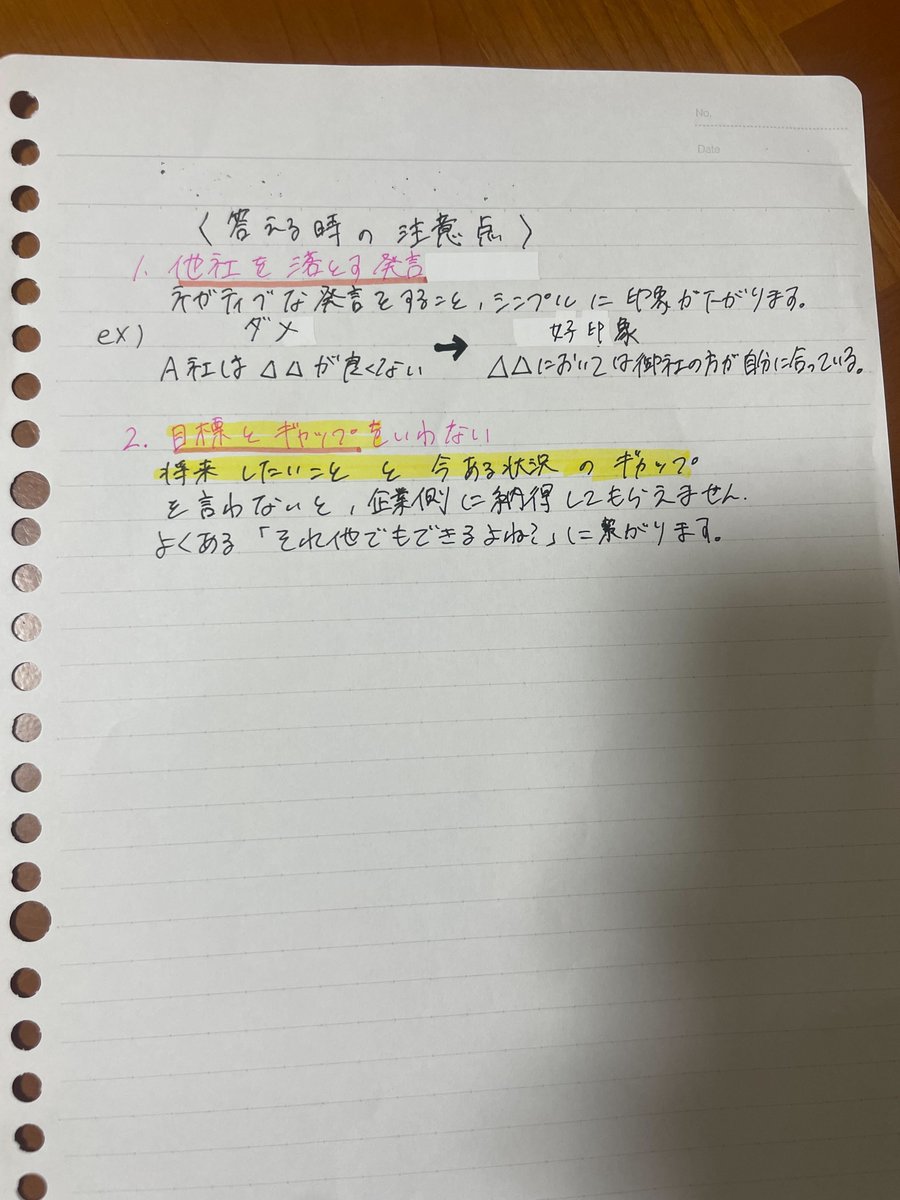 No.
Date
〈答える時の注意点〉
1. 他社を落とす発言
ネガティブな発言をすること、シンプルに印象が下がります。
ex) ダメ → 好印象
A社は△△が良くない △△においては御社の方が自分に合っている。
2. 目標とギャップをいわない
将来したいことと今ある状況のギャップ
を言わないと、企業側に納得してもらえません。
よくある「それ他でもできるよね?」に繋がります。